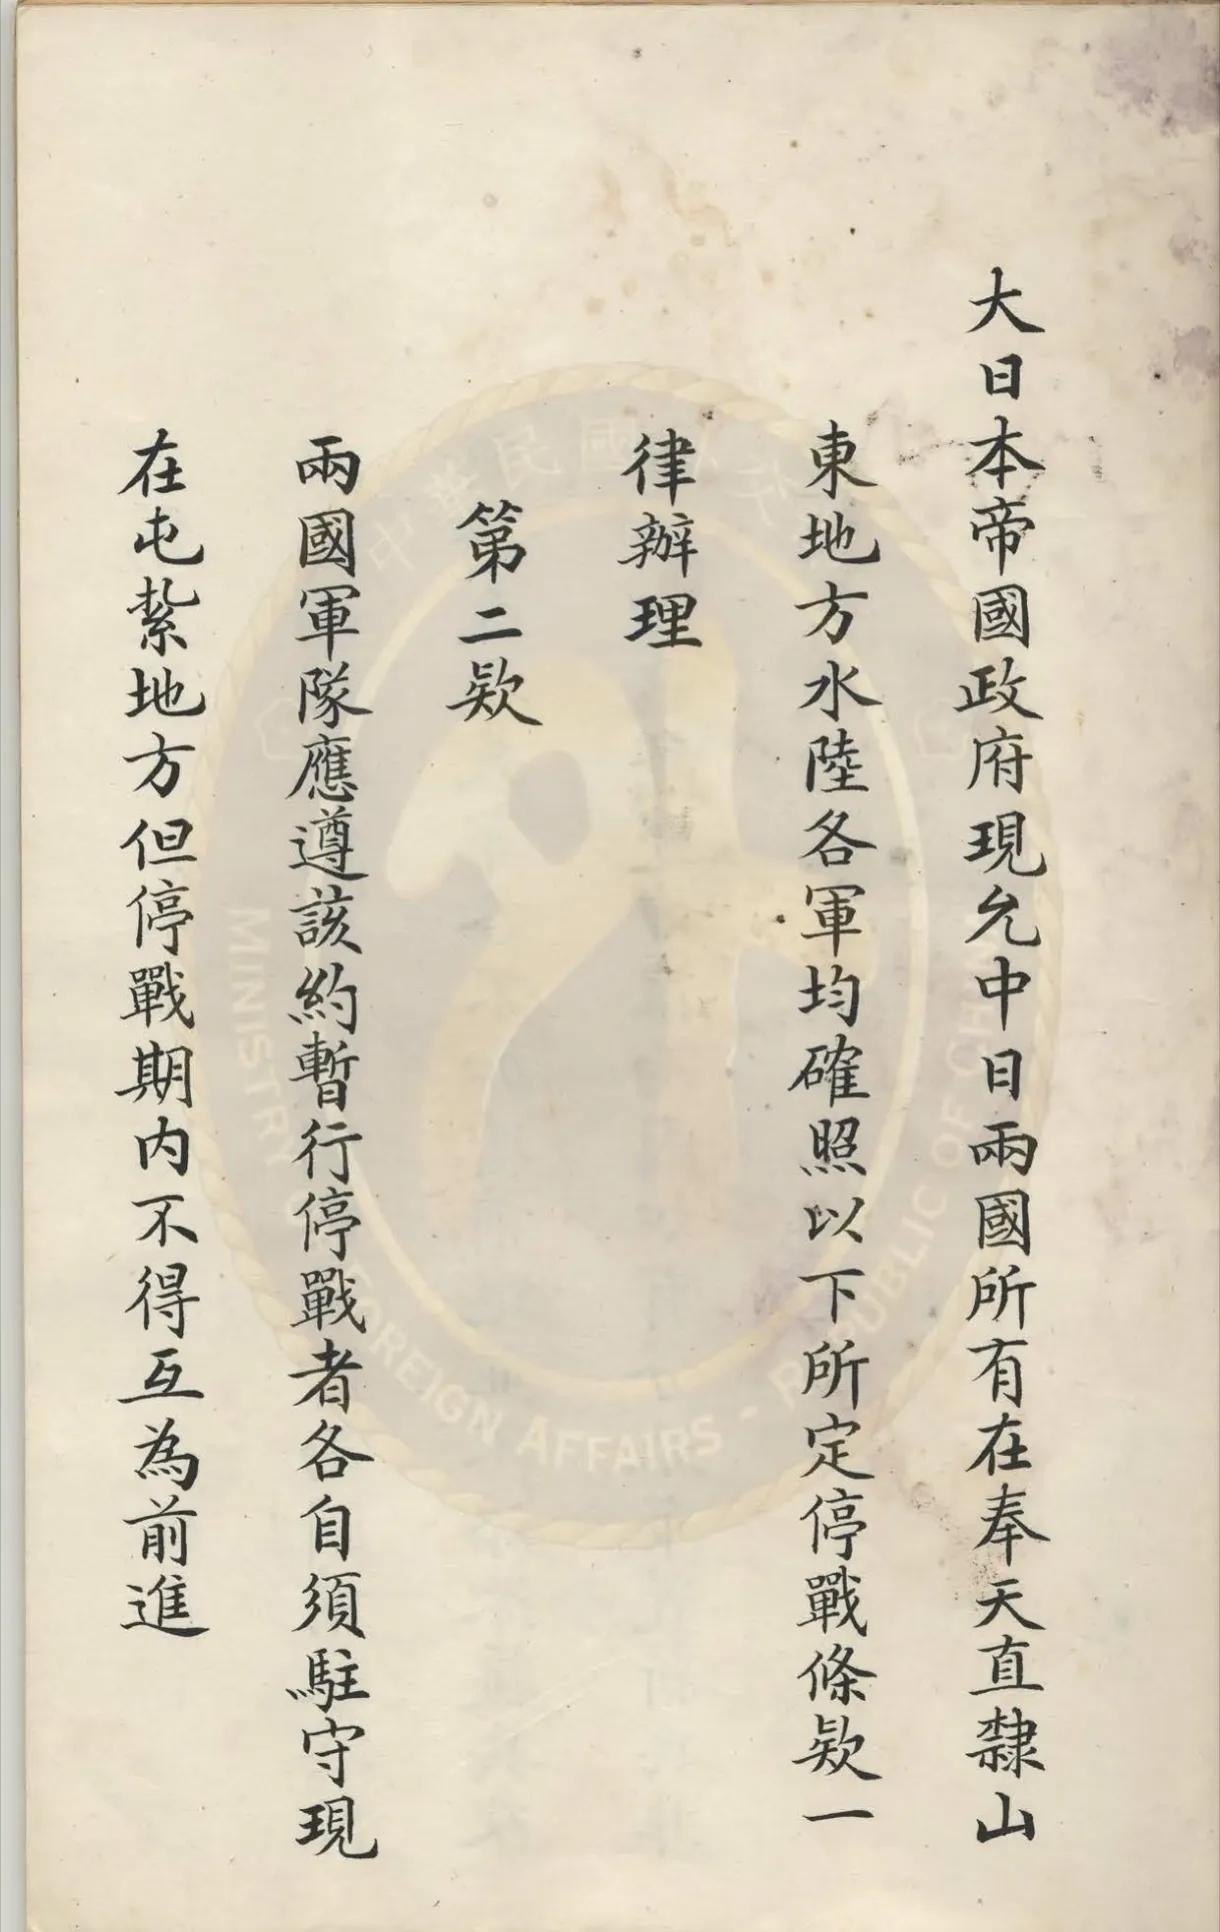 大日本帝國政府現允中日兩國所有在奉天直隸山
東地方水陸各軍均確照以下所定停戰條欵一
律辦理
第二欵
兩國軍隊應遵該約暫行停戰者各自須駐守現
在屯紮地方但停戰期内不得互為前進
中華民國外交
MINISTRY OF FOREIGN AFFAIRS - REPUBLIC OF CHINA